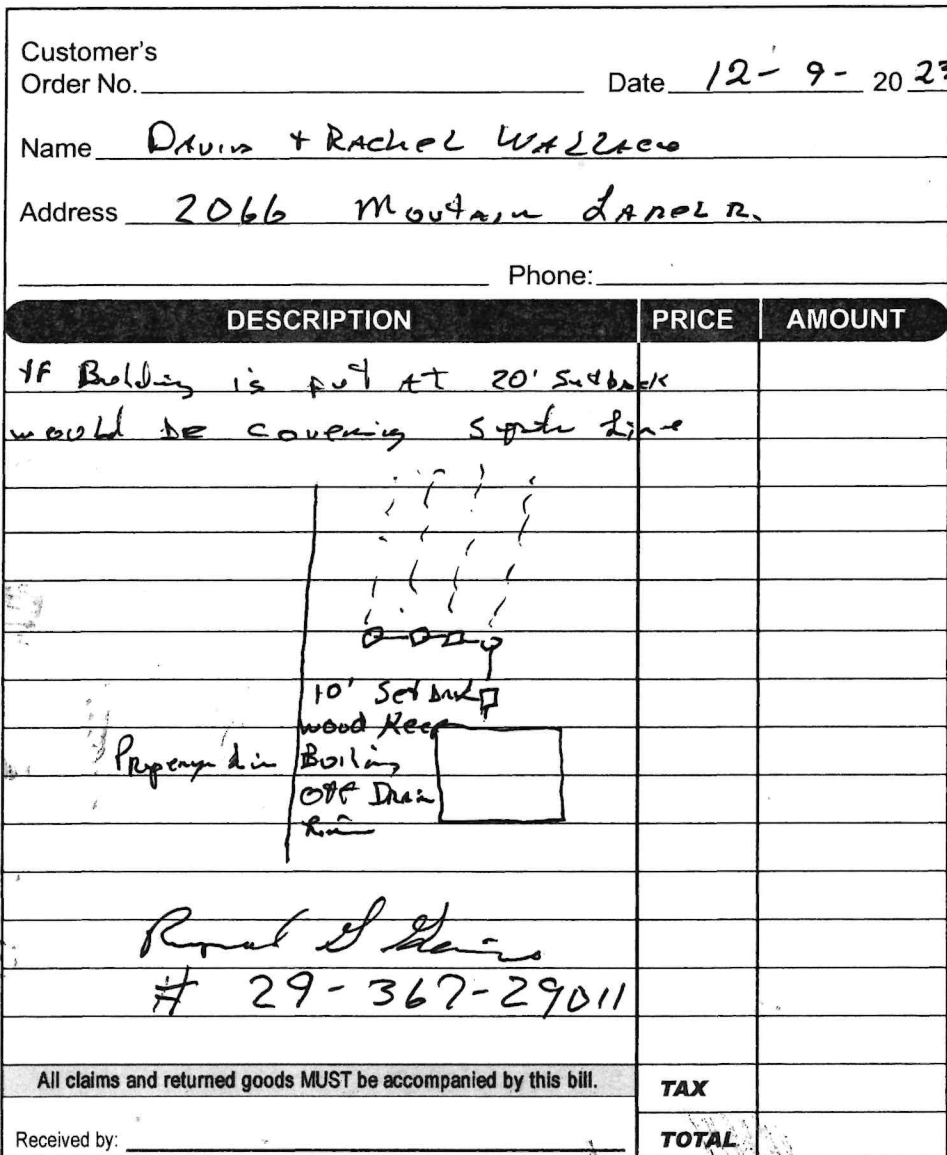 Customer's
Order No. Date 12- 9- 20 23
Name DAVID + RACHEL WALLACE
Address 2066 Moutain LAREL R.
Phone:
DESCRIPTION PRICE AMOUNT
IF Building is put AT 20' Setback
would be covering Septic Line
10' Set back
wood Keep
Property Lin Boiling
OFF Drain
Lin
# 29-367-29011
All claims and returned goods MUST be accompanied by this bill. TAX
Received by: TOTAL